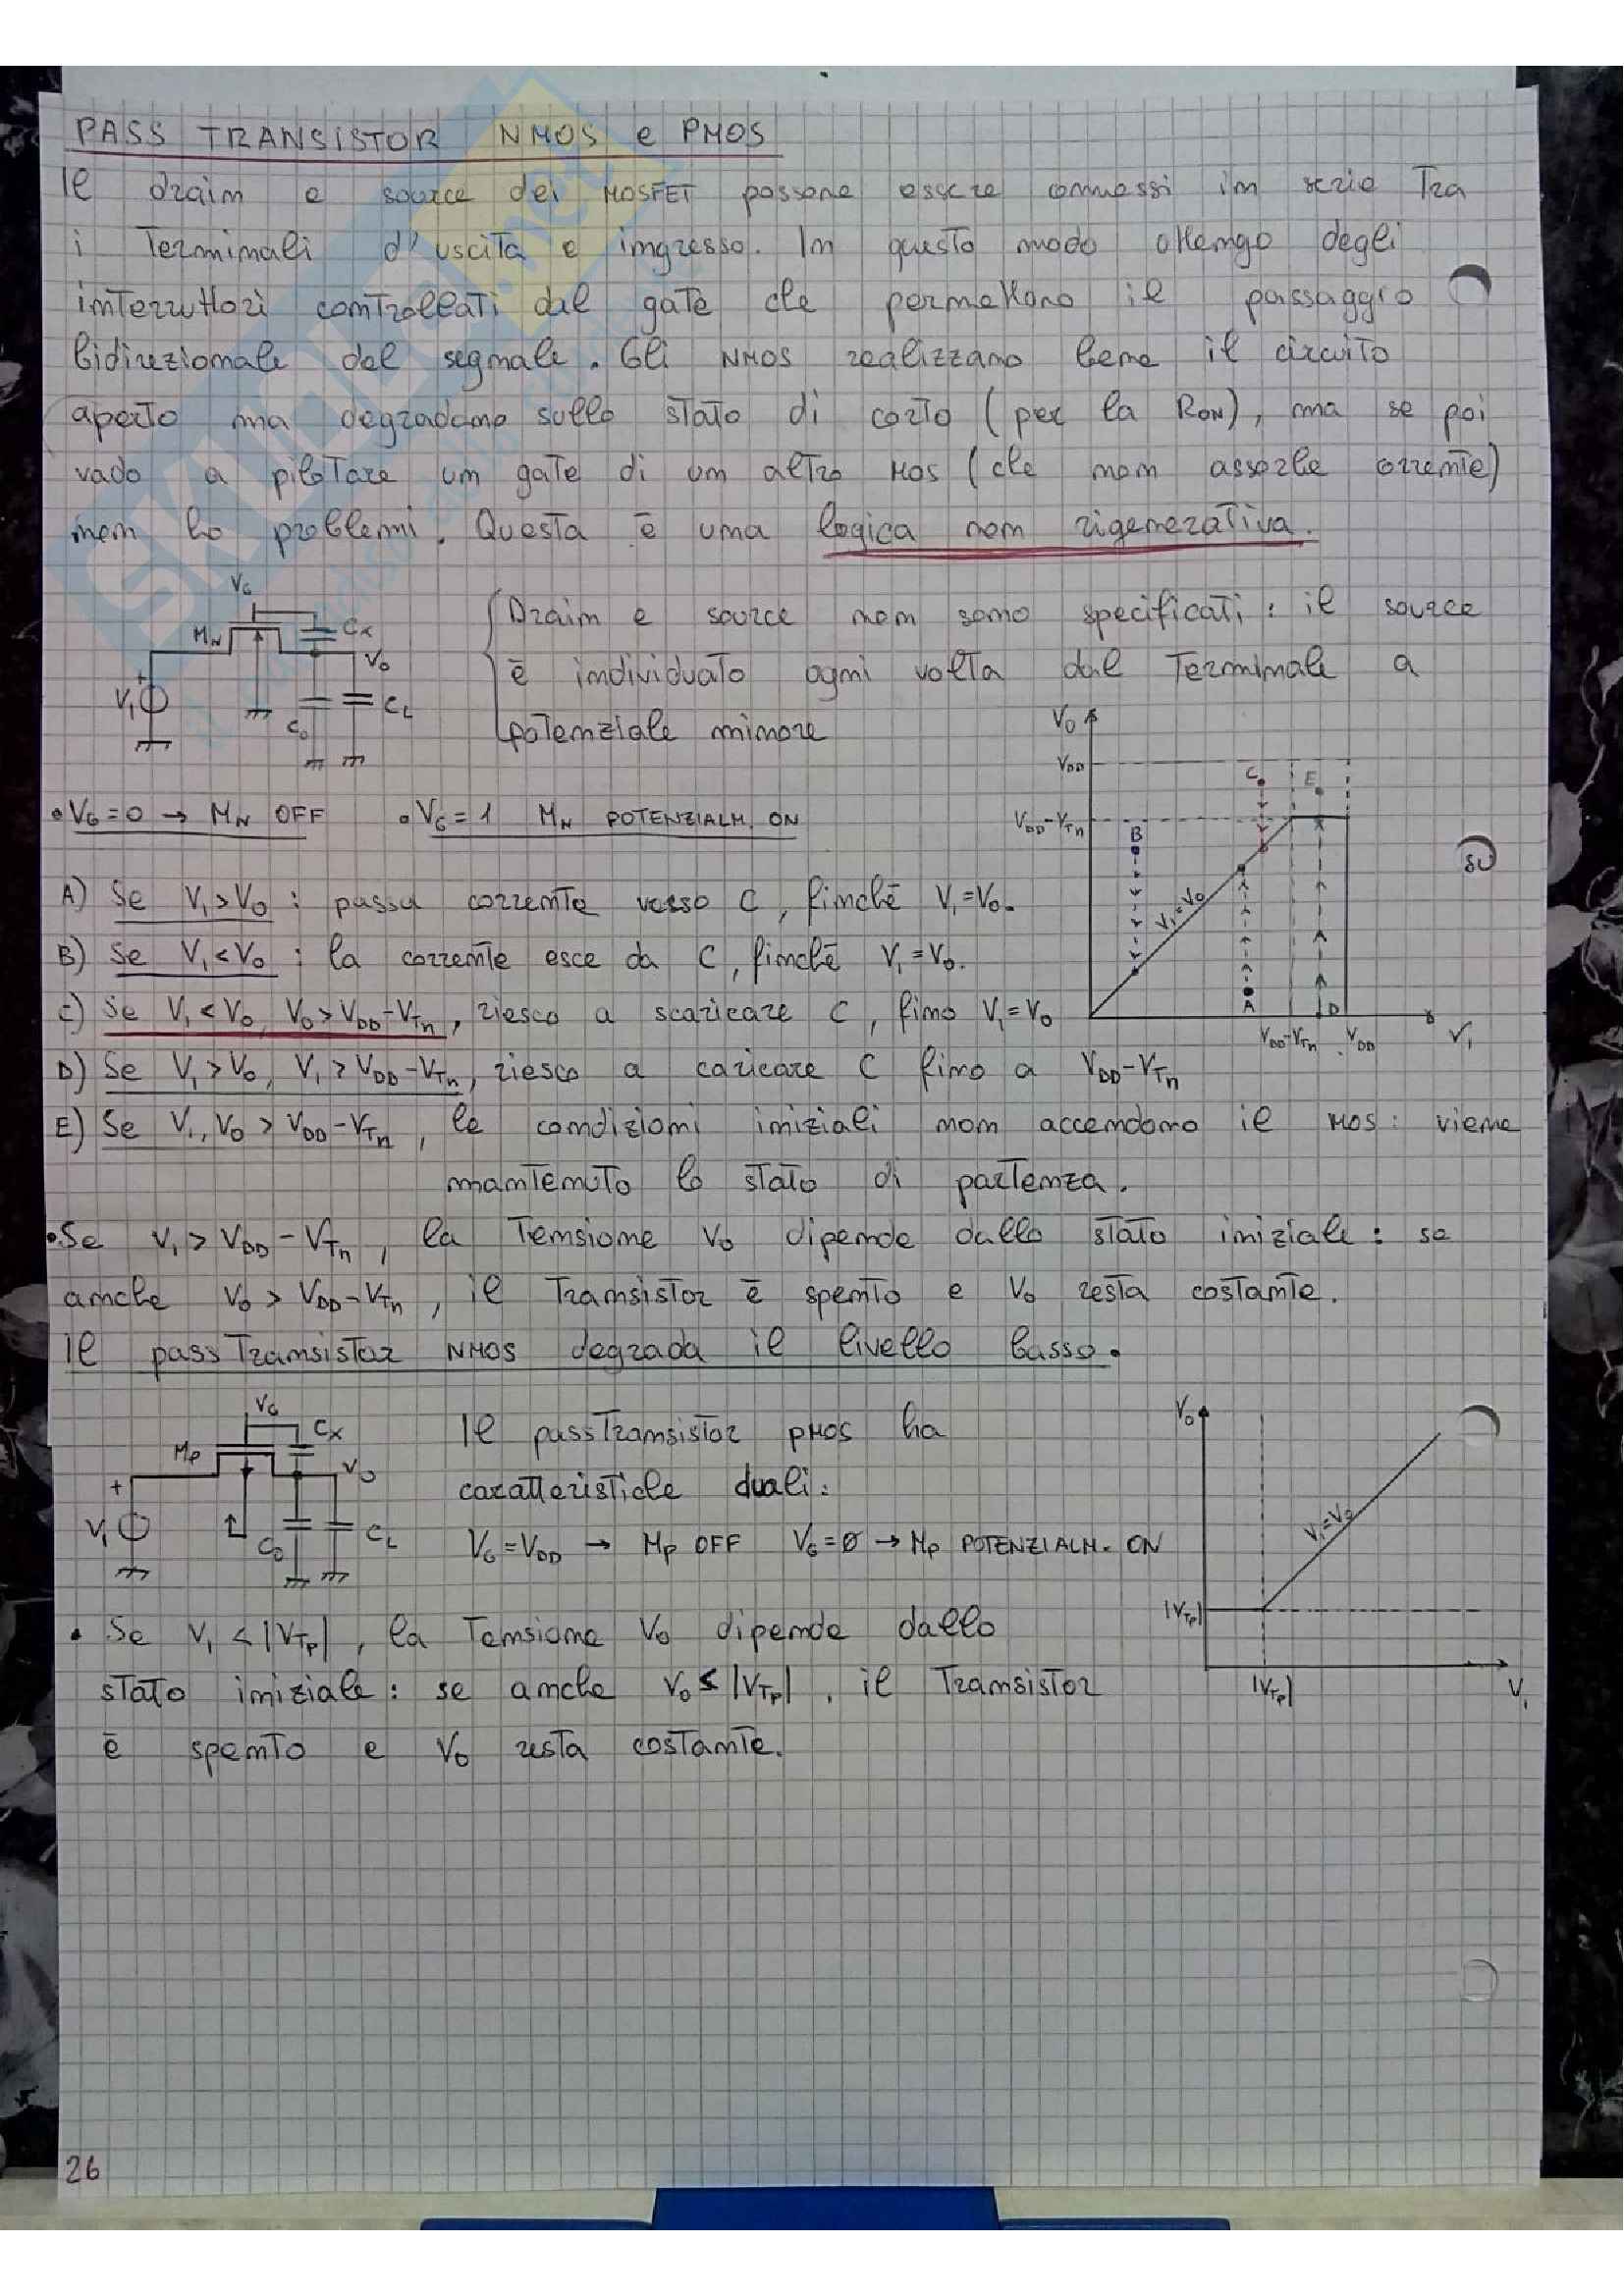 PASS TRANSISTOR NMOS e PMOS
Il drain e source dei MOSFET possono essere connessi in serie Tra
i Terminali d'uscita e ingresso. In questo modo ottengo degli
interruttori controllati dal gate che permettono il passaggio
bidirezionale del segnale. Gli NMOS realizzano bene il circuito
aperto ma degradano sullo stato di corto (per la RON), ma se poi
vado a pilotare un gate di un altro MOS (che non assorbe corrente)
non ho problemi. Questa è una logica non rigenerativa.
VG
MN
CX
VO
VI
+
CO
CL
Drain e source non sono specificati: il source
è individuato ogni volta dal Terminale a
potenziale minore
• VG=0 → MN OFF • VG=1 MN POTENZIALM. ON
A) Se VI>VO : passa corrente verso C, finchè VI=VO.
B) Se VI<VO : la corrente esce da C, finchè VI=VO.
C) Se VI<VO, VO>VDD-VTn, riesco a scaricare C, fino VI=VO
D) Se VI>VO, VI>VDD-VTn, riesco a caricare C fino a VDD-VTn
E) Se VI,VO>VDD-VTn, le condizioni iniziali non accendono il MOS: viene
mantenuto lo stato di partenza.
VO
VDD
VDD-VTn
B
C
E
VI=VO
A
D
VDD-VTn
VDD
VI
• Se VI>VDD-VTn, la Tensione VO dipende dallo stato iniziale: se
anche VO>VDD-VTn, il Transistor è spento e VO resta costante.
Il passTransistor NMOS degrada il livello basso.
VG
CX
MP
VO
+
VI
CO
CL
Il passTransistor pMOS ha
caratteristiche duali:
VG=VDD → MP OFF VG=0 → MP POTENZIALM. ON
• Se VI<|VTp|, la Tensione VO dipende dallo
stato iniziale: se anche VO≤|VTp|, il Transistor
è spento e VO resta costante.
VO
VI=VO
|VTp|
|VTp|
VI
26